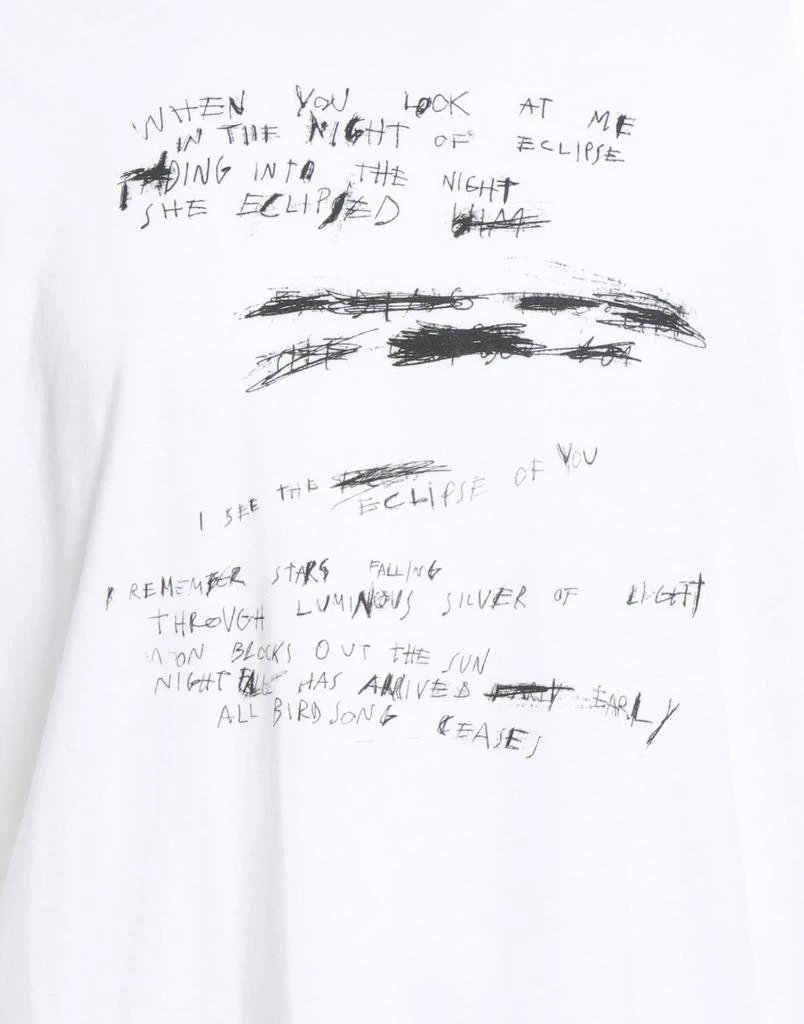 WHEN YOU LOOK AT ME
IN THE NIGHT OF ECLIPSE
FADING INTO THE NIGHT
SHE ECLIPSED HIM
I SEE THE
ECLIPSE OF YOU
I REMEMBER STARS FALLING
THROUGH LUMINOUS SILVER OF LIGHT
MOON BLOCKS OUT THE SUN
NIGHT HAS ARRIVED EARLY EARLY
ALL BIRDSONG CEASES